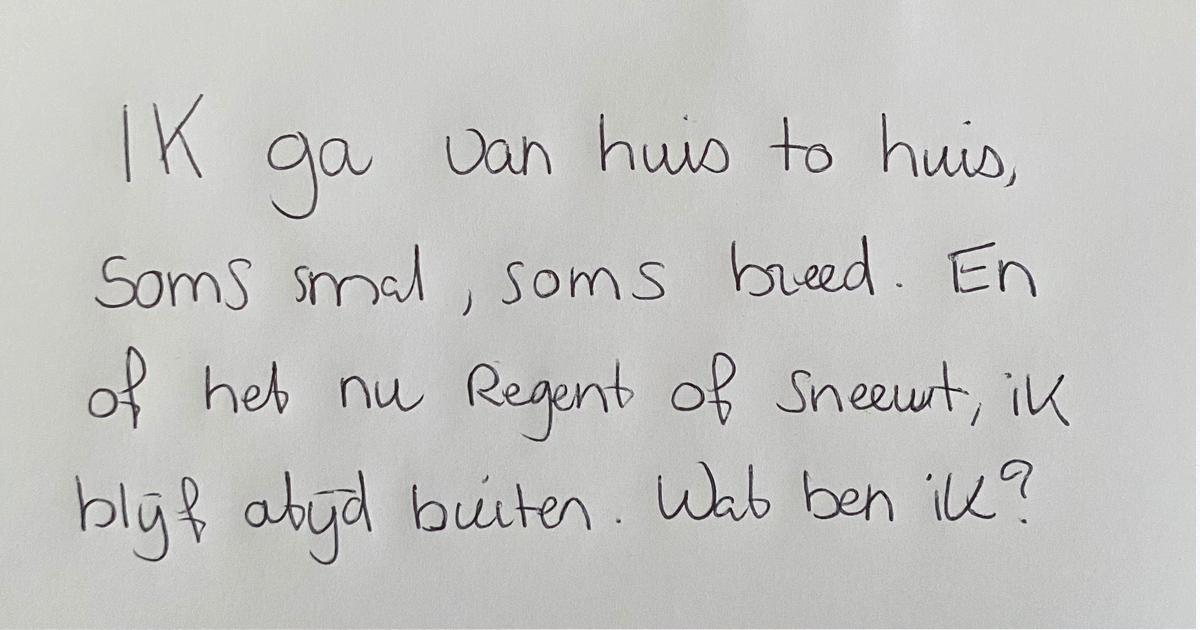 Ik ga van huis to huis,
Soms smal, soms breed. En
of het nu Regent of Sneeuwt, ik
blijf altijd buiten. Wat ben ik?